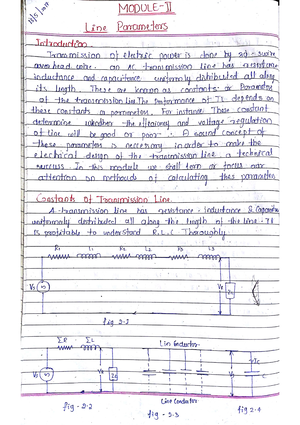 MODULE-II
Line Parameters
Introduction
Transmission of electric power is done by 3φ-3wire
overhead wire. an AC transmission line has resistance
inductance and capacitance uniformly distributed all along
its length. These are known as constants or Parameters
of the transmission line. The Performance of TL depends on
these constants or parameters. For instance These constant
determine whether the efficiency and voltage regulation
of line will be good or poor. A sound concept of
these parameters is necessary in order to make the
electrical design of the transmission line a technical
success. In this module we shall focus our
attention on methods of calculating this parameter
Constants Of Transmission Line.
A transmission line has resistance, Inductance & Capacitance
uniformly distributed all along the length of the line. It
is profitable to understand R.L.C Thoroughly.
R1 L1 R2 L2 R3 L3
fig 2.1
ΣR ΣL Line Conductor
Line Conductor
fig - 2.2 fig - 2.3 fig 2.4